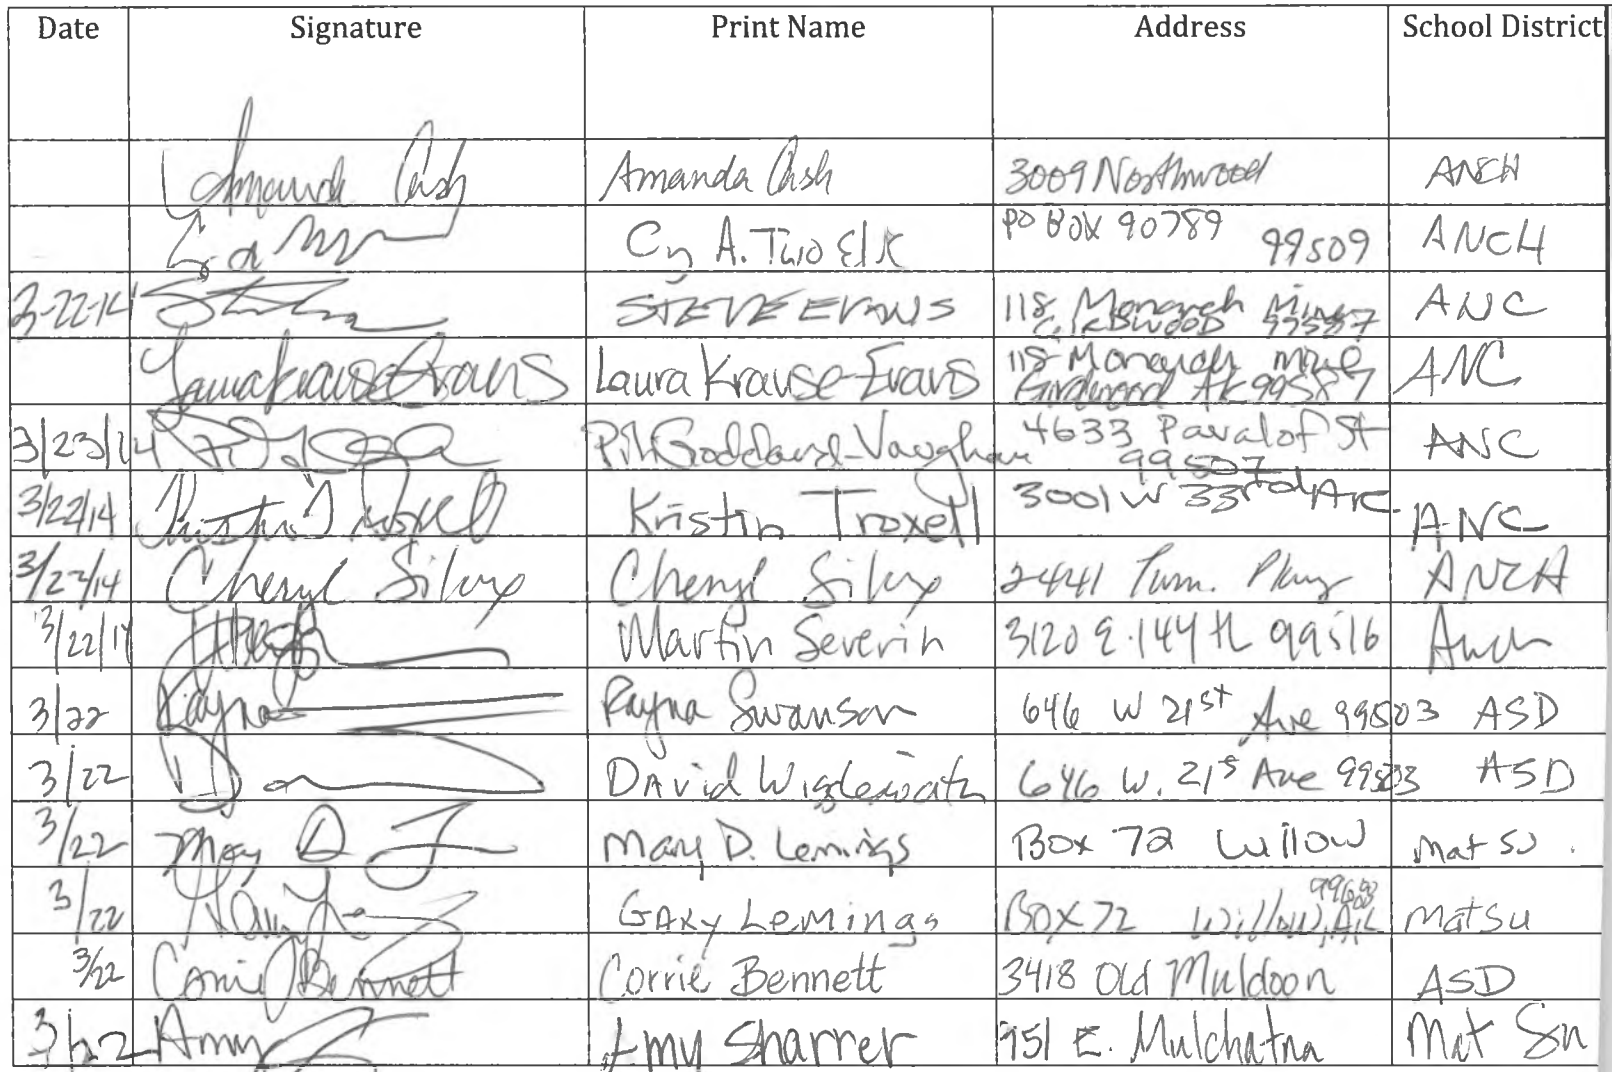 Date Signature Print Name Address School District
Amanda Cash Amanda Cash 3009 Northwood ANCH
Cy A. Two Elk PO BOX 90789 99509 ANCH
3-22-14 STEVE EVANS 118 Monarch Mine ANC
GIRDWOOD 99587
Laura Krause-Evans Laura Krause-Evans 118 Monarch Mine ANC
Girdwood AK 99587
3/23/14 Goddard-Vaughan 4633 Pavalof St ANC
99507
3/22/14 Kristin Troxell Kristin Troxell 3001 W 33rd ANC
3/22/14 Cheryl Silux Cheryl Silux 2441 ANCH
3/22/14 Martin Severin 3120 E. 144th 99516 Anch
3/22 Rayna Rayna Swanson 646 W 21st Ave 99503 ASD
3/22 DAVid 646 W. 21s Ave 99503 ASD
3/22 Mary D Mary D. Lemings Box 72 Willow Mat Su.
3/22 GARY LeMings BOX 72 Willow, AK 99688 Matsu
3/22 Corrie Bennett Corrie Bennett 3418 Old Muldoon ASD
3/22 Amy Amy Sharrer 951 E. Mulchatna Mat Su